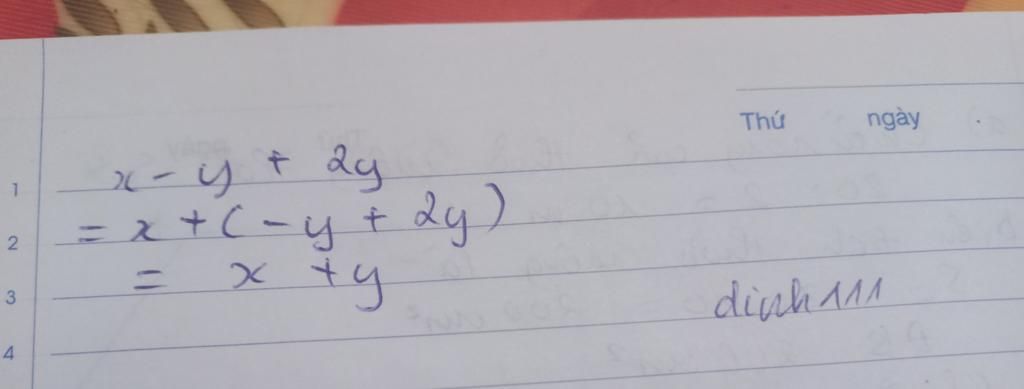 Thứ ngày .
1 x - y + 2y
2 = x + ( - y + 2y )
3 = x + y
dinh111
4